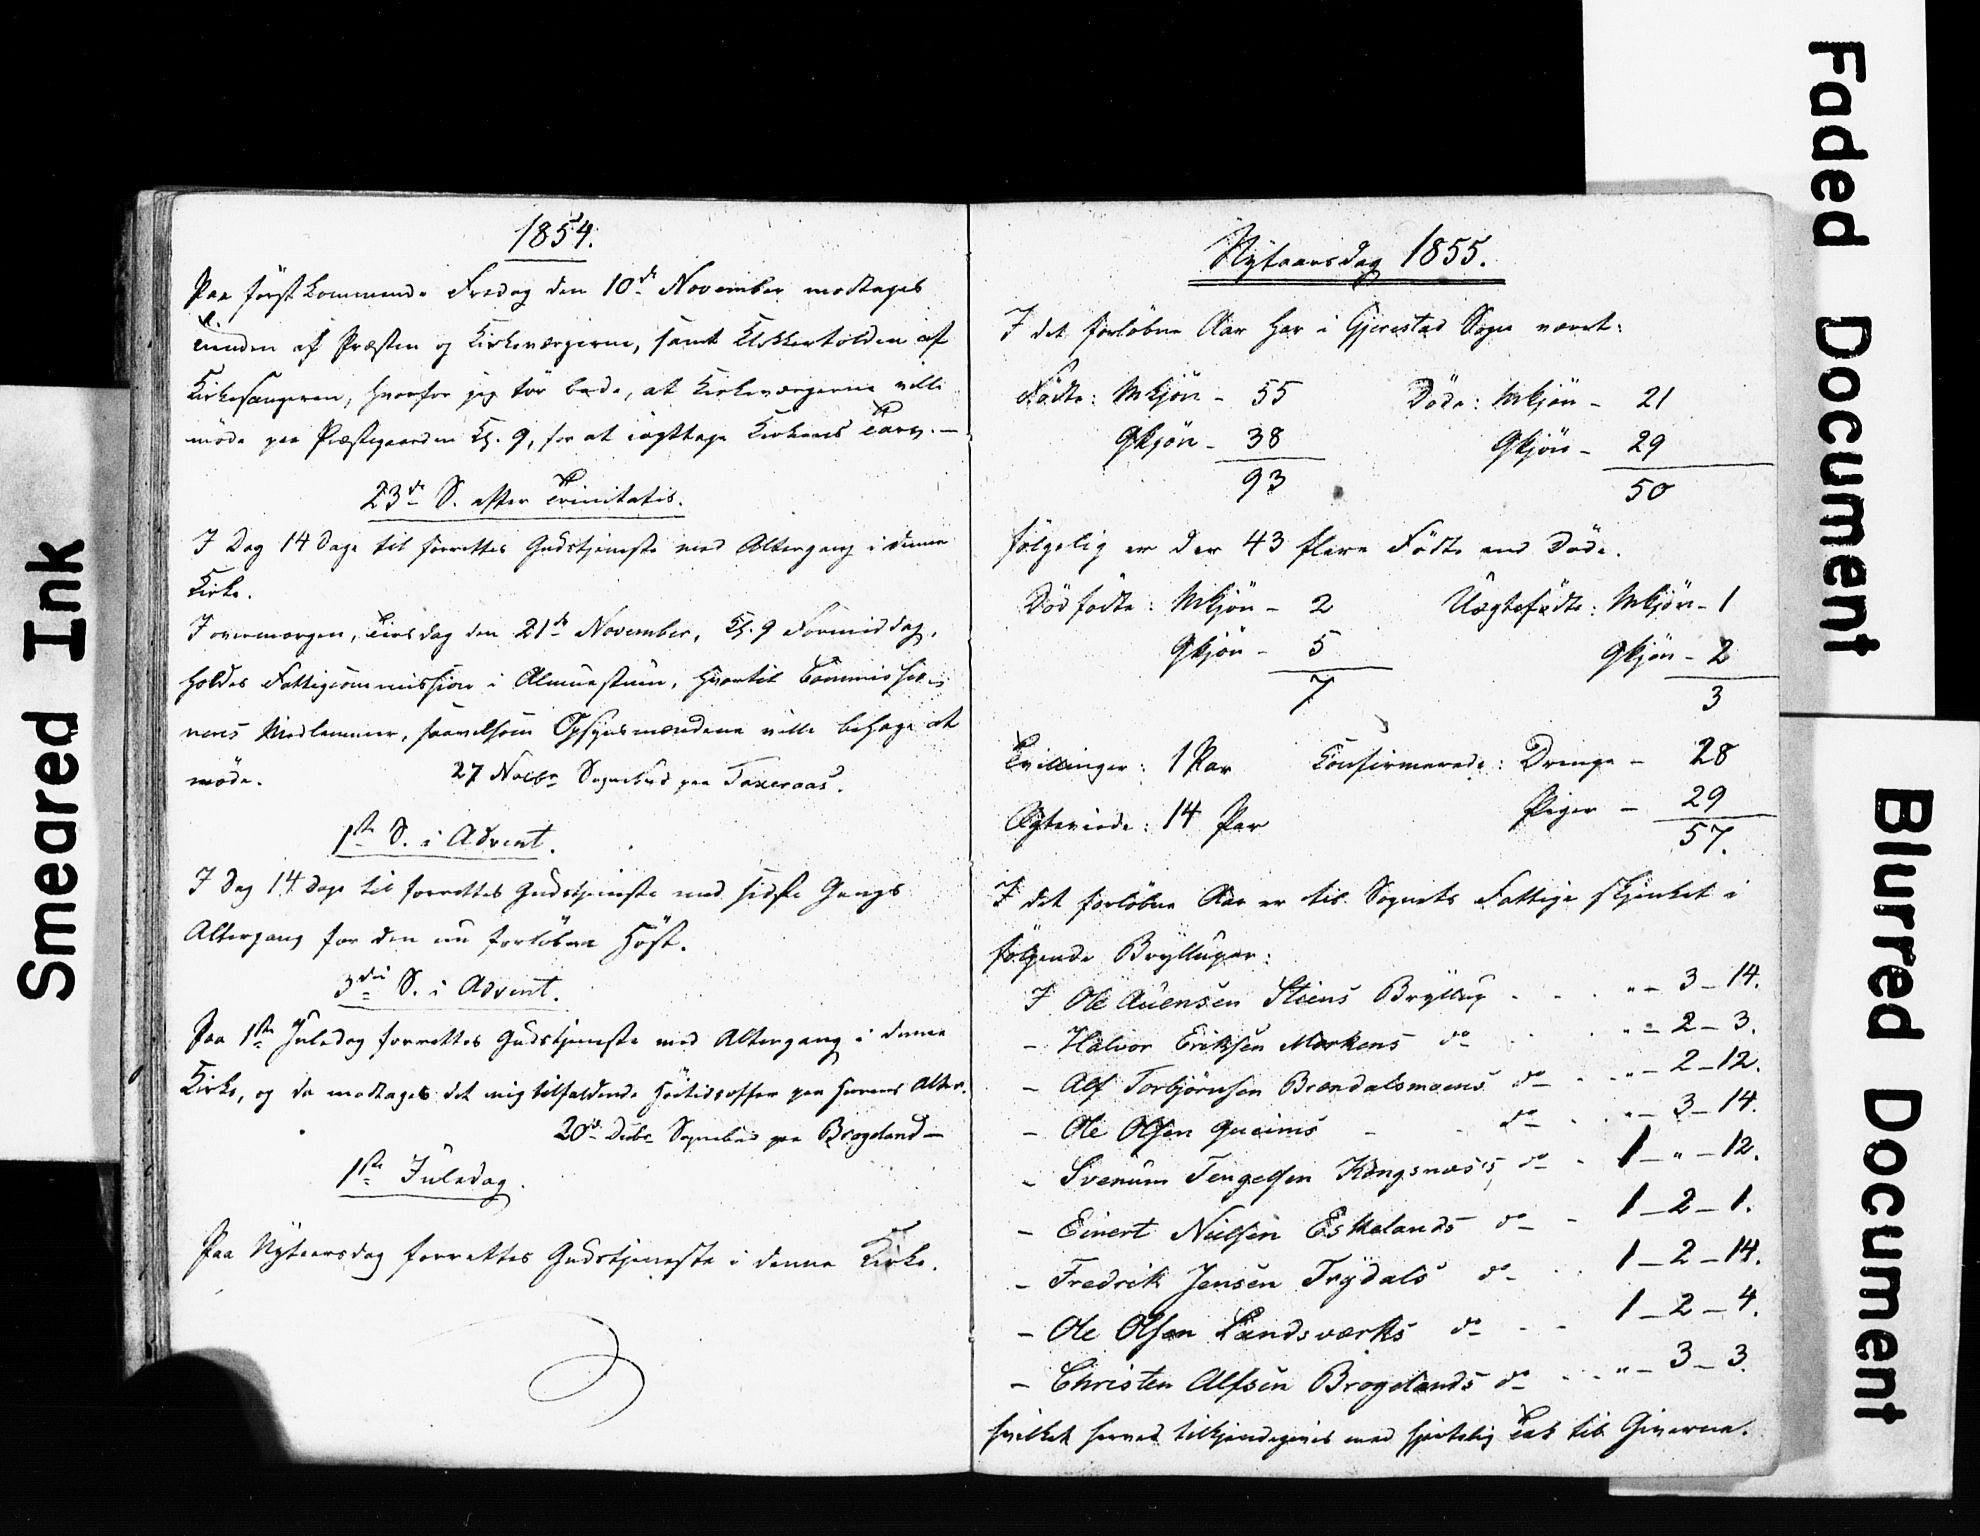 1854.
Paa förstkommende Fredag den 10de November modtages
Tienden af Præsten og Kirkeværgerne, samt Klokkertolden af
Kirkesangeren, hvorfor jeg tör bede, at Kirkeværgerne ville
möde paa Præstegaarden Kl. 9, for at iagttage Kirkens Tarv. —
23de S. efter Trinitatis.
I Dag 14 Dage til forrettes Gudstjeneste med Altergang i denne
Kirke.
I overmorgen, Tirsdag den 21de November, Kl. 9 Formiddag,
holdes Fattigcommission i Almuestuen, hvortil Commissio-
nens Medlemmer, saavelsom Opsynsmændene ville behage at
möde. 27 Novbr Sognebud paa Taxeraas.
1ste S. i Advent.
I Dag 14 Dage til forrettes Gudstjeneste med sidste Gangs
Altergang for den nu forlöbne Höst.
3die S. i Advent.
Paa 1ste Juledag forrettes Gudstjeneste med Altergang i denne
Kirke, og da modtages det mig tilfaldende Höitidsoffer paa Herrens Alter.
20de Decbr Sognebud paa Brogeland —
1ste Juledag.
Paa Nytaarsdag forrettes Gudstjeneste i denne Kirke.
Nytaarsdag 1855.
I det forlöbne Aar har i Gjerestad Sogn været:
Födte: Mkjön – 55 Döde: Mkjön – 21
Qkjön – 38 Qkjön – 29
93 50
fölgelig er der 43 flere Födte end Döde.
Dödfödte: Mkjön – 2 Uægtefödte: Mkjön – 1
Qkjön – 5 Qkjön – 2
7 3
Tvillinger: 1 Par Konfirmerede: Drenge – 28
Ægteviede: 14 Par Piger – 29
57.
I det forlöbne Aar er til Sognets Fattige skjenket i
fölgende Bryllupper:
I Ole Auensen Steens Bryllup - - - „ – 3 – 14.
– Halvor Eriksen Morkens do - - „ – 2 – 3.
– Alf Torbjörnsen Brændalsmoens do - - „ – 2 – 12.
– Ole Olsen Queims - - do - - „ – 3 – 14.
– Svenum Tengelsen Kongsnæs's do - 1 – „ – 12.
– Einert Nielsen Eskelands do - 1 – 2 – 1.
– Fredrik Jensen Trydals do - - 1 – 2 – 14.
– Ole Olsen Landsværks do - - 1 – 2 – 4.
– Christen Alfsen Brogelands do - - „ – 3 – 3.
hvilket herved tilkjendegives med hjertelig Tak til Giverne.
Smeared Ink
Faded Document
Blurred Document